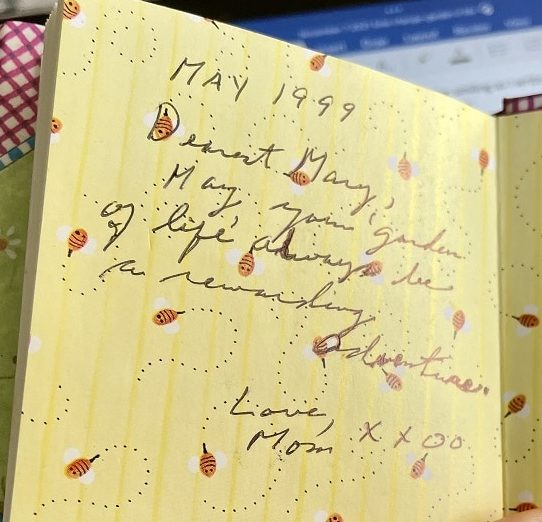 MAY 1999
Dearest Mary,
May your garden
of life always be
a rewarding
adventure.
Love,
Mom XXOO